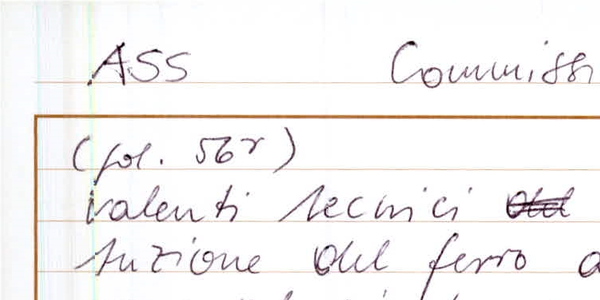 ASS Commissi
(fol. 56r)
valenti tecnici
tuzione del ferro